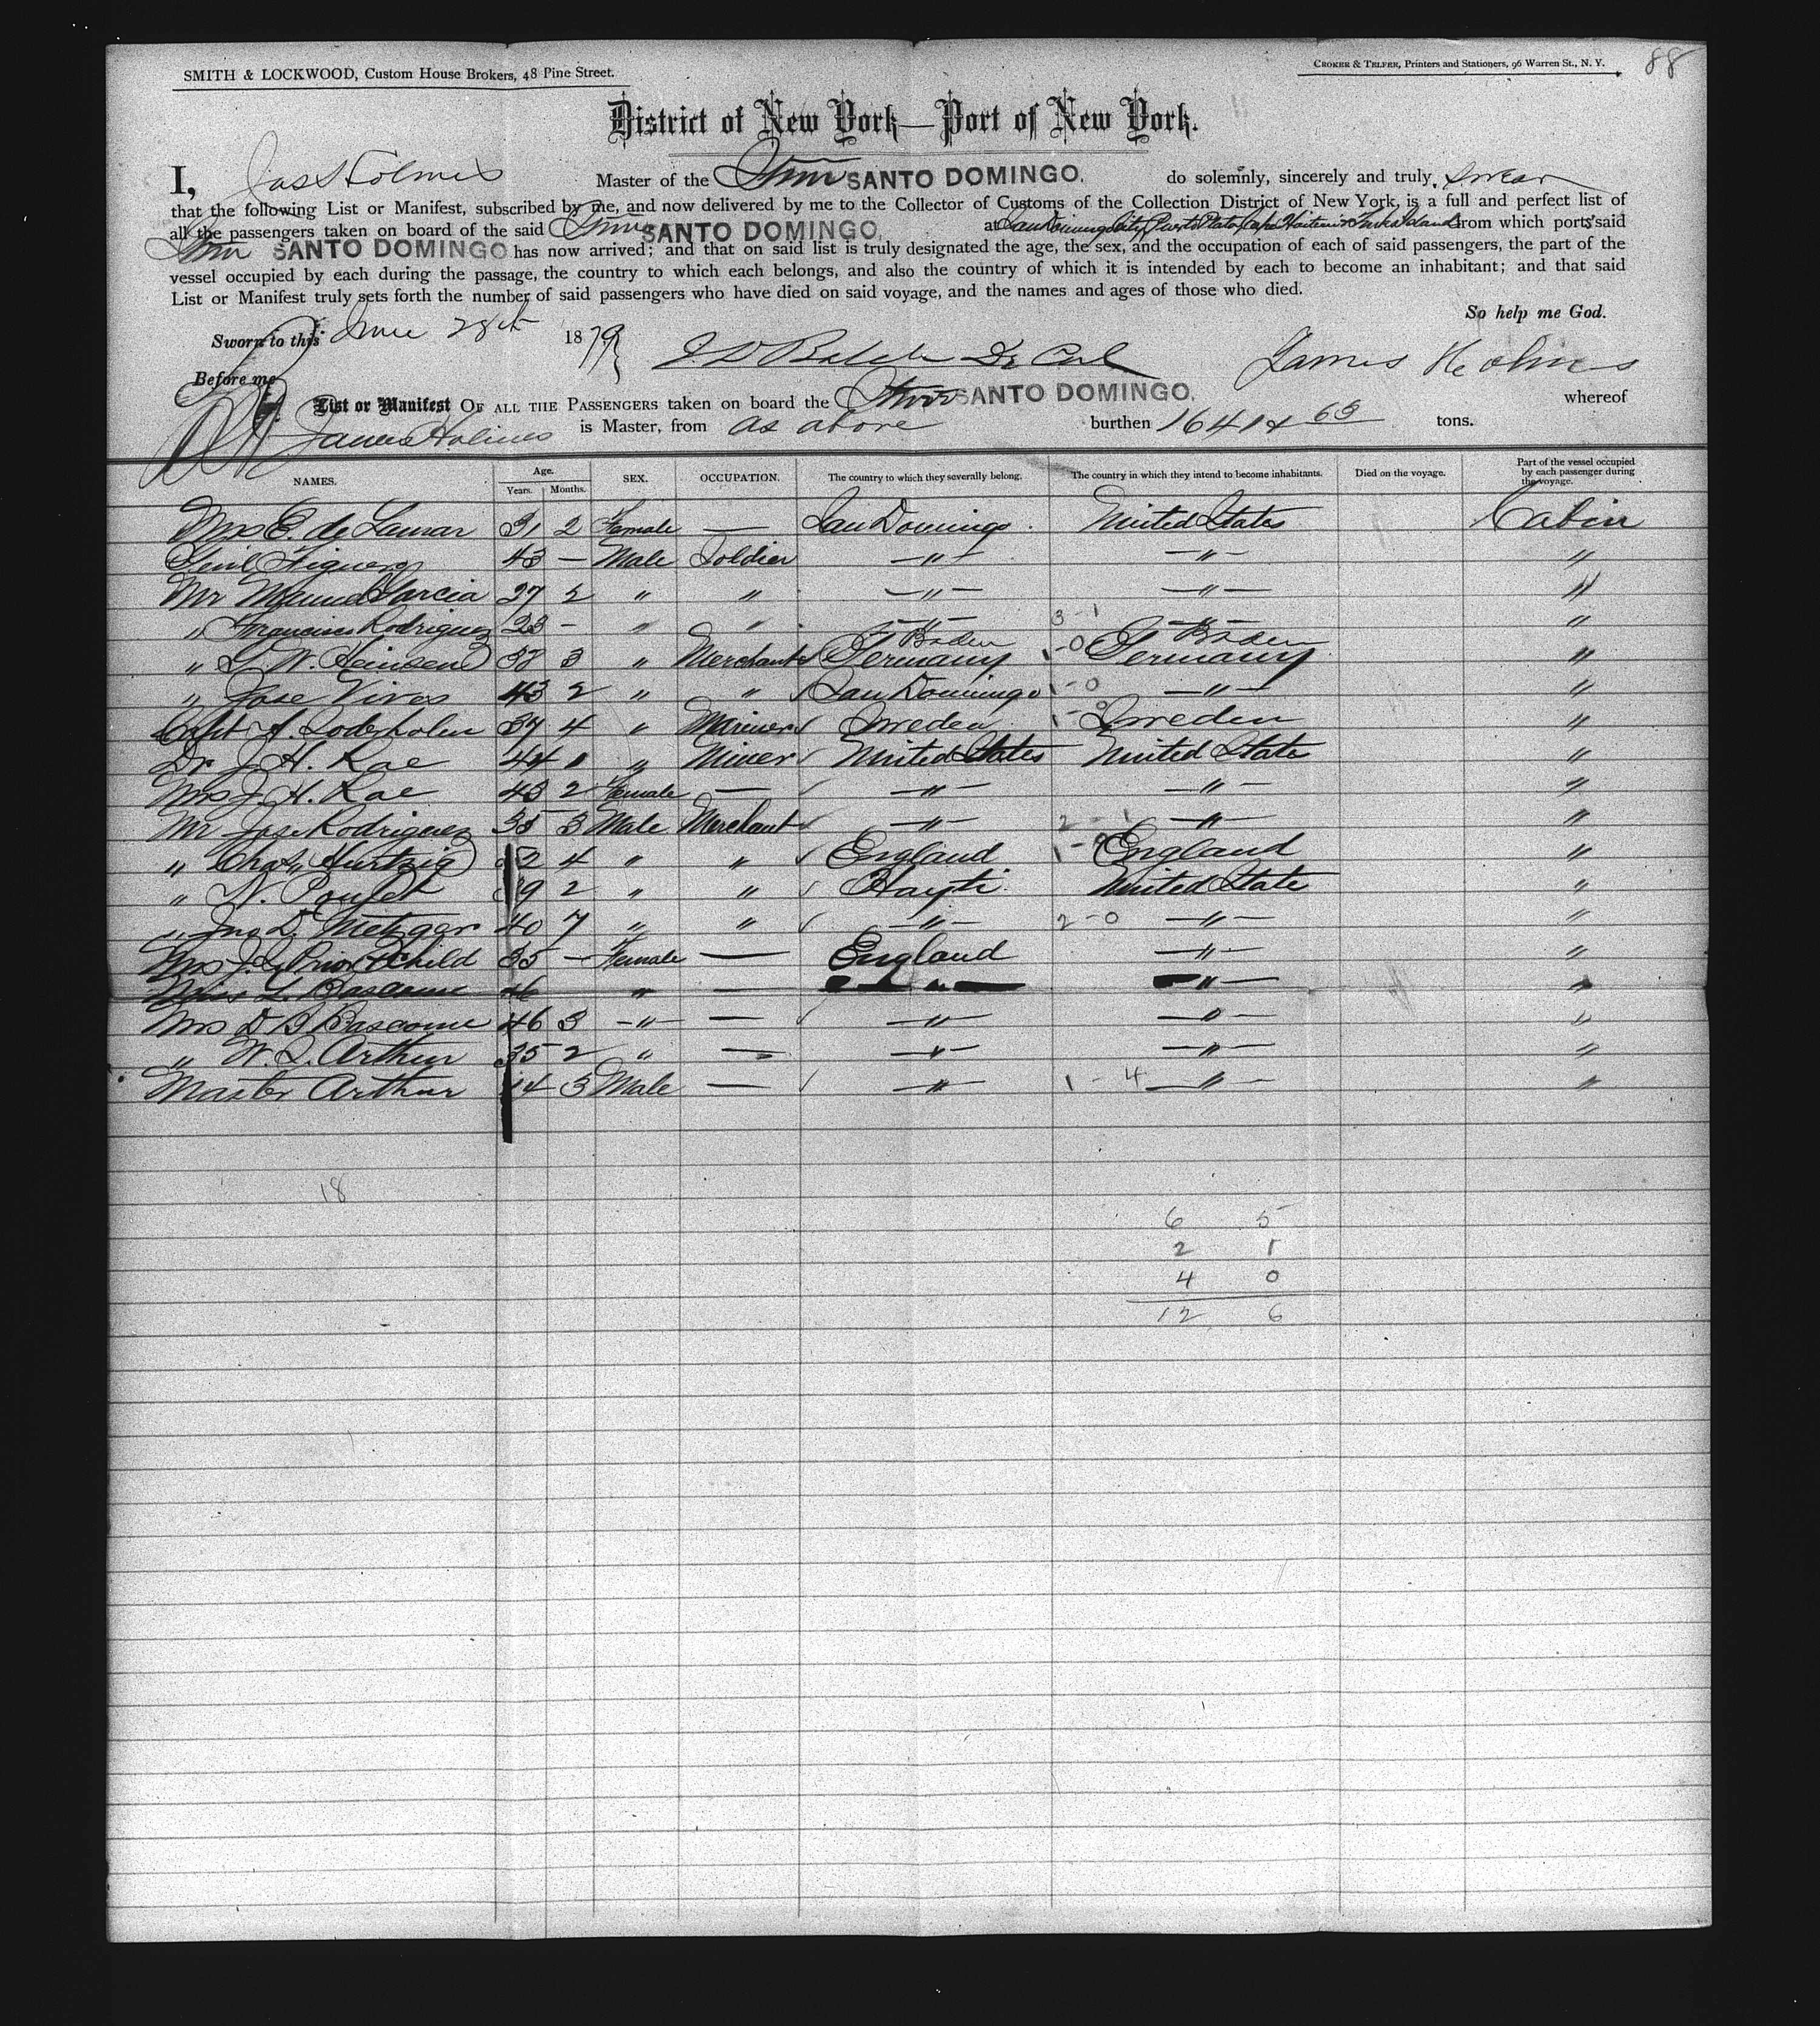 88
SMITH & LOCKWOOD, Custom House Brokers, 48 Pine Street.
CROKER & TELFER, Printers and Stationers, 96 Warren St., N. Y.
District of New York—Port of New York.
I, Jas Holmes Master of the Stmr SANTO DOMINGO. do solemnly, sincerely and truly, swear
that the following List or Manifest, subscribed by me, and now delivered by me to the Collector of Customs of the Collection District of New York, is a full and perfect list of
all the passengers taken on board of the said Stmr SANTO DOMINGO. at San Domingo City, Puerto Plata, Cape Haitien & Turks Island from which ports said
Stmr SANTO DOMINGO has now arrived; and that on said list is truly designated the age, the sex, and the occupation of each of said passengers, the part of the
vessel occupied by each during the passage, the country to which each belongs, and also the country of which it is intended by each to become an inhabitant; and that said
List or Manifest truly sets forth the number of said passengers who have died on said voyage, and the names and ages of those who died.
So help me God.
Sworn to this June 28th 1879 James Holmes
Before me
List or Manifest OF ALL THE PASSENGERS taken on board the Stmr SANTO DOMINGO. whereof
James Holmes is Master, from as above burthen 1641 & 63 tons.
NAMES. Age. Years. Months. SEX. OCCUPATION. The country to which they severally belong. The country in which they intend to become inhabitants. Died on the voyage. Part of the vessel occupied by each passenger during the voyage.
Mrs E. de Lamar 31 2 Female — San Domingo United States Cabin
Genl Figuero 43 — Male Soldier —"— —"— "
Mr Manuel Garcia 27 2 " " —"— —"— "
" Francisco Rodriguez 23 — " " —"— 3-1 —"— "
" G. W. Heinsen 38 3 " Merchant Baden Germany 1-0 Baden Germany "
" Jose Vives 43 2 " " San Domingo 1-0 —"— "
Capt A. Soderholm 37 4 " Mariner Sweden 1-0 Sweden "
Dr J. H. Rae 44 1 " Miner United States United State "
Mrs J. H. Rae 43 2 Female — —"— —"— "
Mr Jose Rodriguez 35 3 Male Merchant —"— 2-1 —"— "
" Chas Hurtzig 52 4 " " England 1-0 England "
" N. 2 " " Hayti United State "
" Jno D. Metzger 40 7 " " —"— 2-0 —"— "
Mrs J. L. Prior & Child 35 — Female — England —"— "
Miss L. Bascome 46 " — —"— "
Mrs D B Bascome 46 3 —"— — —"— —"— "
" W. L. Arthur 35 2 " — —"— —"— "
Master Arthur 14 3 Male — —"— 1-4 —"— "
18
6 5
2 1
4 0
12 6